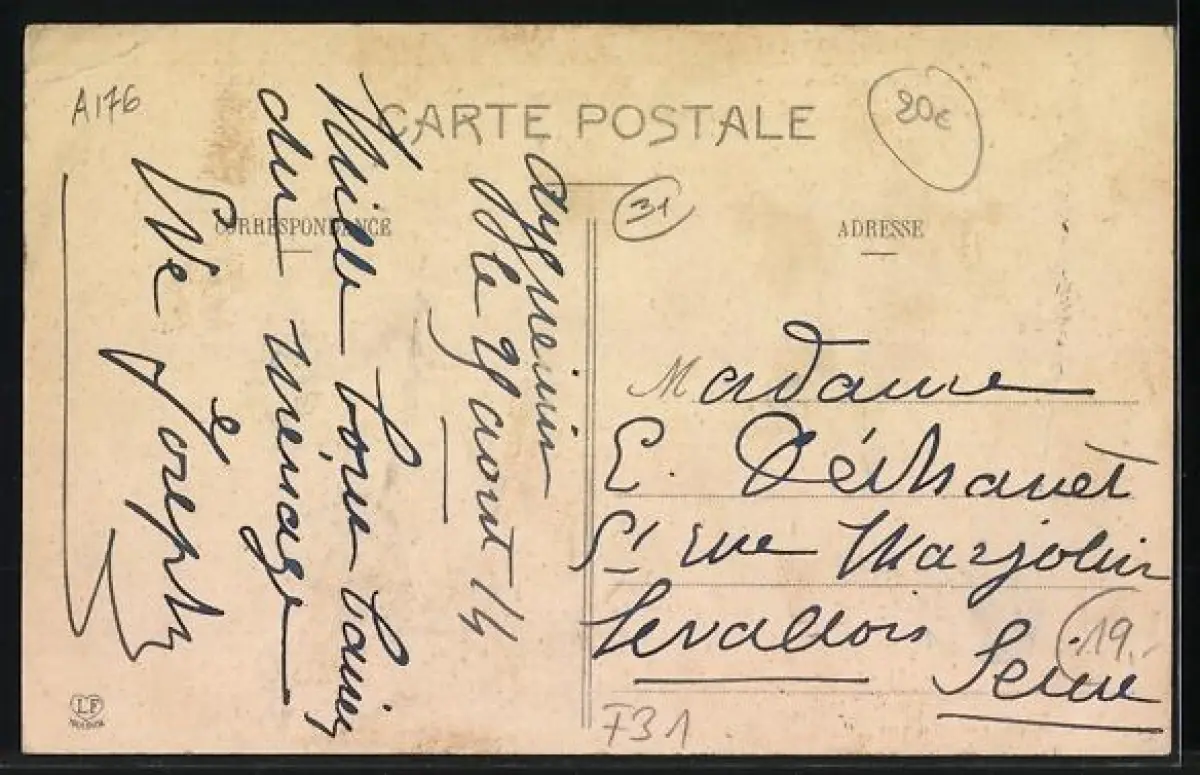 A176
CARTE POSTALE
20€
31
CORRESPONDANCE
ADRESSE
le 25 aout 14
Mille bons baisers
du ménage
Joseph
Madame
E. Déshayet
rue Marjolin
Levallois
Seine
19
F31
LF